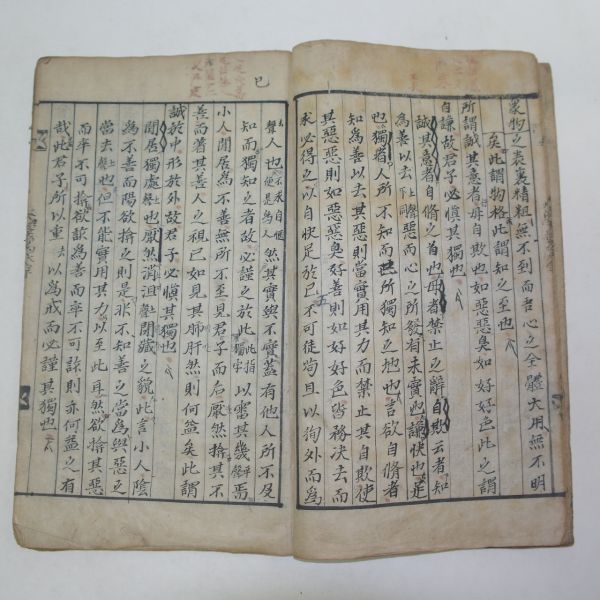 衆物之表裏精粗無不到而吾心之全體大用無不明
矣此謂物格此謂知之至也
所謂誠其意者毋自欺也如惡惡臭如好好色此之謂
自謙故君子必愼其獨也
誠其意者自脩之首也毋者禁止之辭自欺云者知
爲善以去惡而心之所發有未實也謙快也足
也獨者人所不知而己所獨知之地也言欲自脩者
知爲善以去其惡則當實用其力而禁止其自欺使
其惡惡則如惡惡臭好善則如好好色皆務决去而
求必得之以自快足於己不可徒苟且以徇外而爲
巳
人也然其實與不實蓋有他人所不及
知而獨知之者故必謹之於此以審其幾焉
小人閒居爲不善無所不至見君子而后厭然揜其不
善而著其善人之視己如見其肺肝然則何益矣此謂
誠於中形於外故君子必愼其獨也
閒居獨處也厭然消沮閉藏之貌此言小人陰
爲不善而陽欲揜之則是非不知善之當爲與惡之
當去也但不能實用其力以至此耳然欲揜其惡
而卒不可揜欲詐爲善而卒不可詐則亦何益之有
哉此君子所以重以爲戒而必謹其獨也